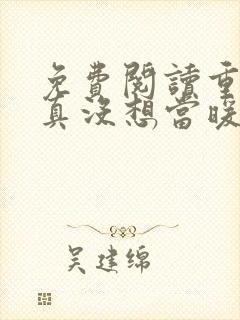 免費閱讀重
真沒想當暖
吴建绵